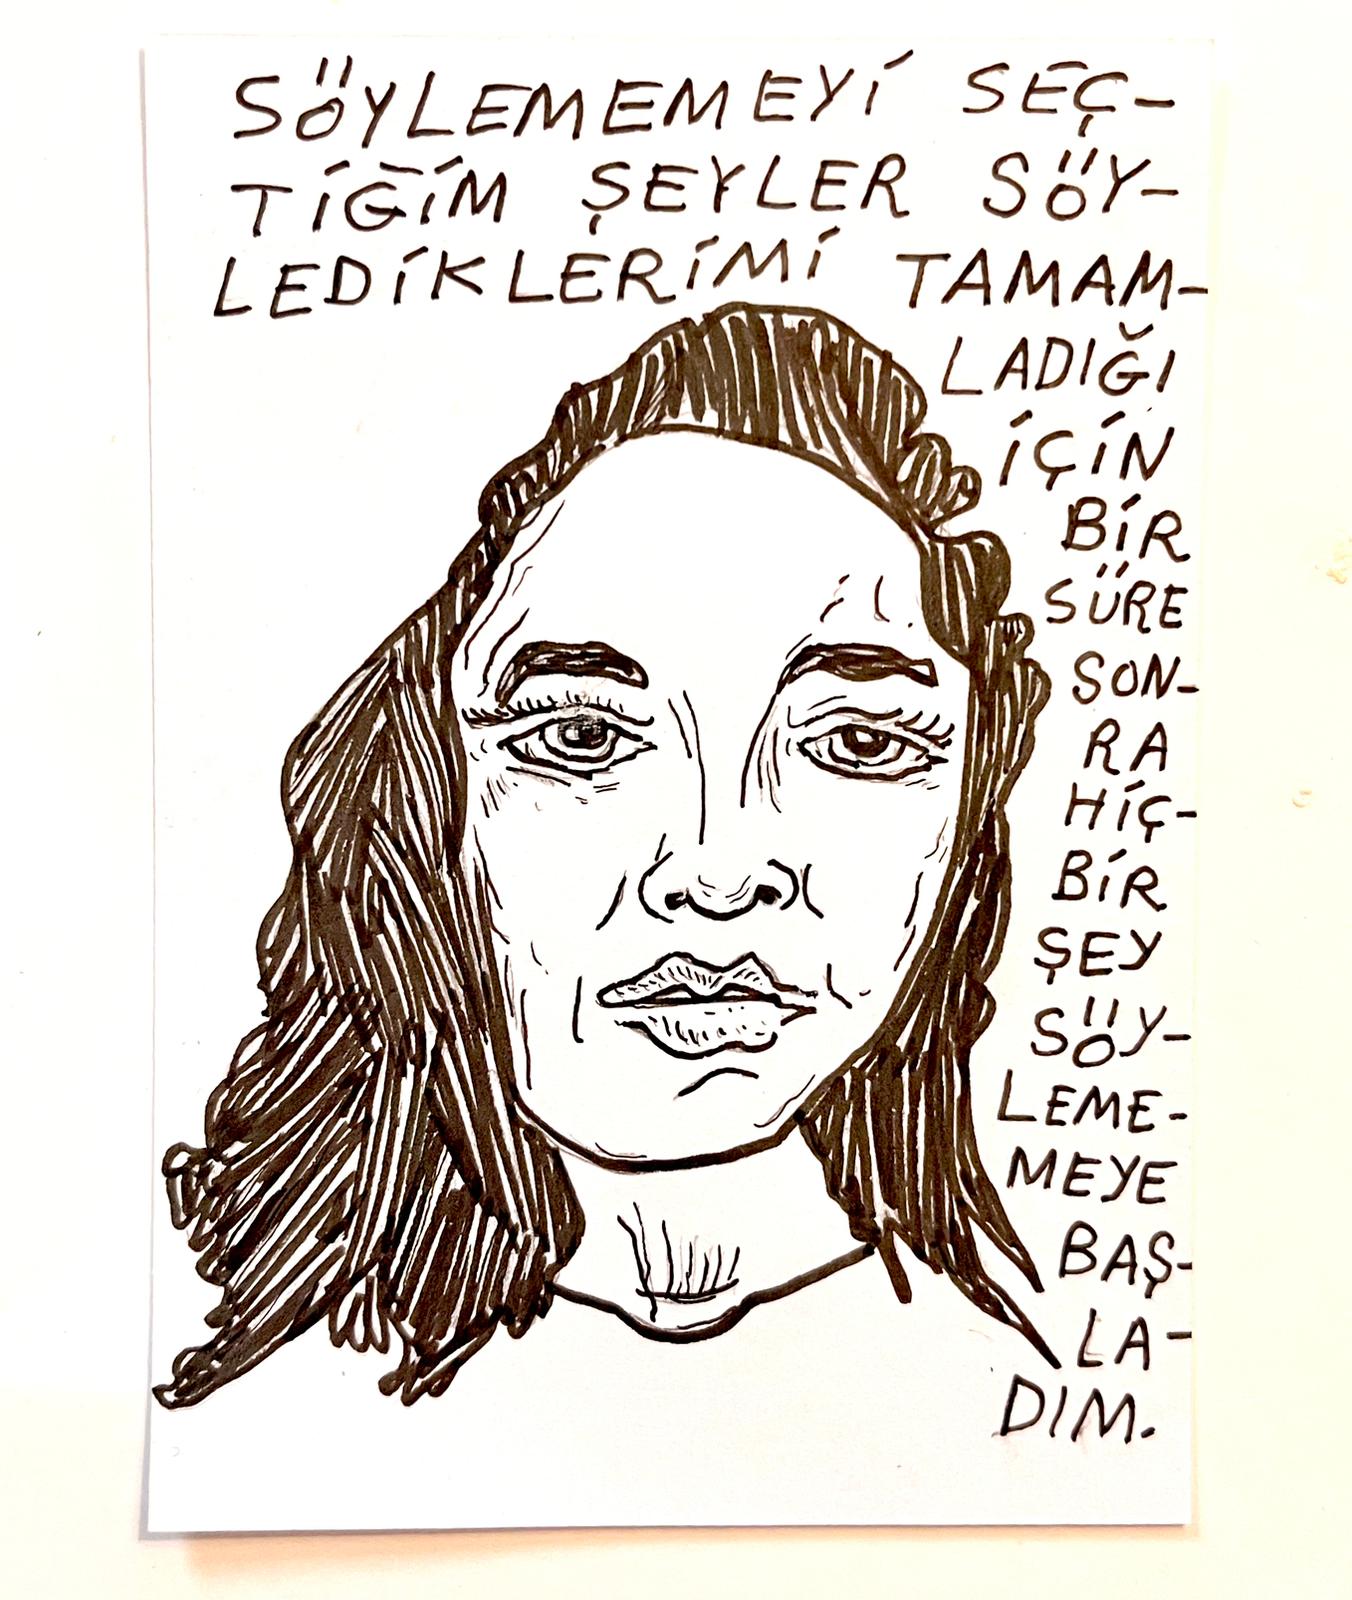 SÖYLEMEMEYİ SEÇ-
TİĞİM ŞEYLER SÖY-
LEDİKLERİMİ TAMAM-
LADIĞI
İÇİN
BİR
SÜRE
SON-
RA
HİÇ-
BİR
ŞEY
SÖY-
LEME-
MEYE
BAŞ-
LA-
DIM.